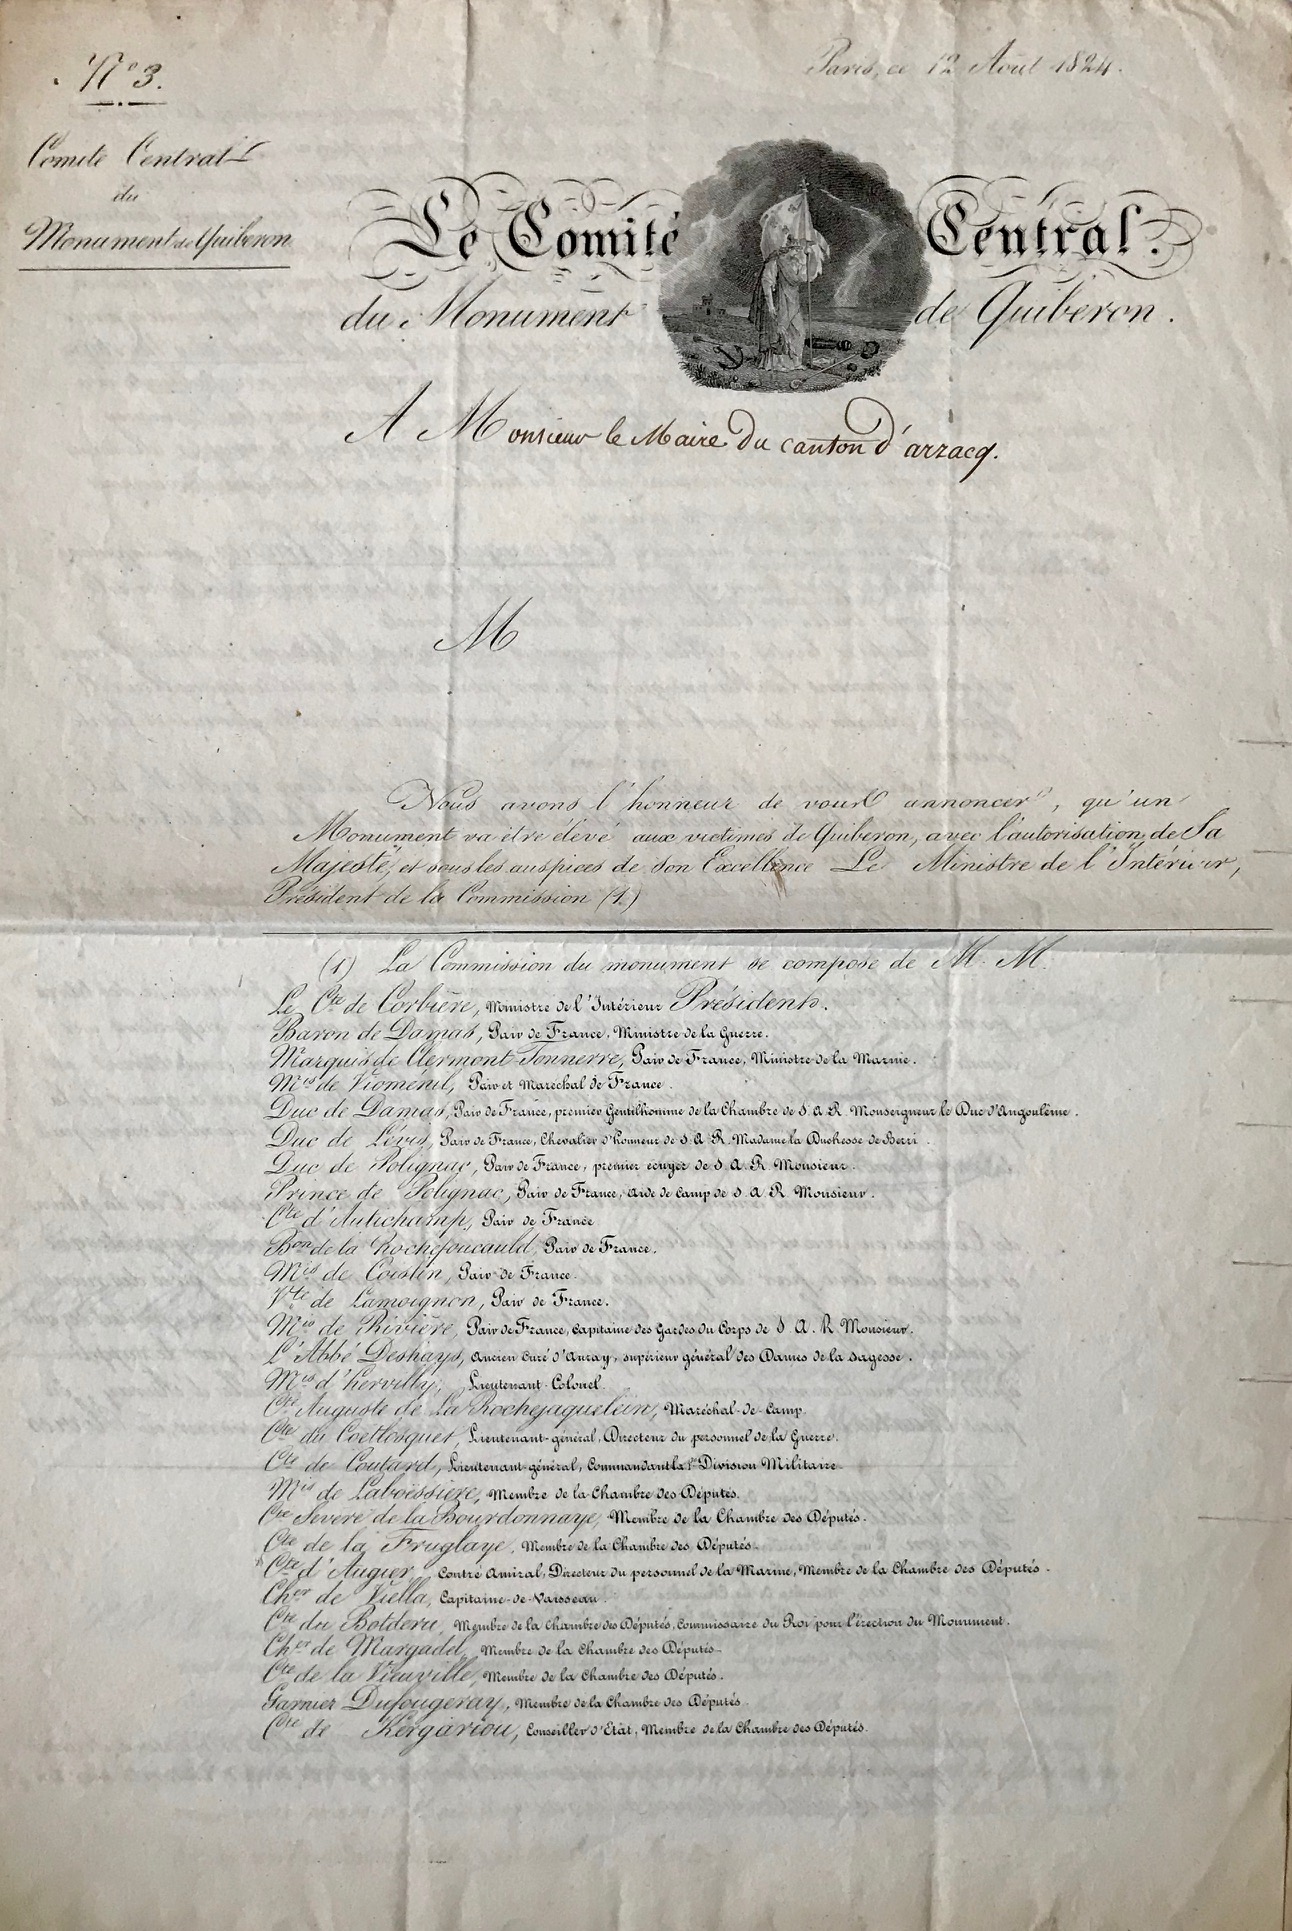 N.° 3.
Paris, ce 12 Août 1824.
Comité Central
du
Monument de Quiberon
Le Comité Central.
du Monument de Quiberon.
A Monsieur le Maire Du canton d'arzacq.
M
Nous avons l'honneur de vous annoncer, qu'un
Monument va être élevé aux victimes de Quiberon, avec l'autorisation de Sa
Majesté, et sous les auspices de Son Excellence Le Ministre de l'Intérieur,
Président de la Commission (1.)
(1) La Commission du monument se compose de M. M.
Le Cte de Corbière, Ministre de l'Intérieur Président.
Baron de Damas, Pair de France, Ministre de la Guerre.
Marquis de Clermont Tonnerre, Pair de France, Ministre de la Marine.
Mis de Vioménil, Pair et Maréchal de France.
Duc de Damas, Pair de France, premier Gentilhomme de la Chambre de S. A. R. Monseigneur le Duc d'Angoulême.
Duc de Lévis, Pair de France, Chevalier d'honneur de S. A. R. Madame la Duchesse de Berri.
Duc de Polignac, Pair de France, premier écuyer de S. A. R. Monsieur.
Prince de Polignac, Pair de France, aide de camp de S. A. R. Monsieur.
Cte d'Autichamp, Pair de France
Bon de la Rochefoucauld, Pair de France.
Mis de Coislin, Pair de France.
Vte de Lamoignon, Pair de France.
Mis de Rivière, Pair de France, capitaine des Gardes du Corps de S. A. R. Monsieur.
L'Abbé Deshays, ancien curé d'Auray, supérieur général des Dames de la sagesse.
Mis d'hervilly, Lieutenant-Colonel.
Cte Auguste de La Rochejaquelein, Maréchal-de-camp.
Cte du Coetlosquet, Lieutenant-général, Directeur du personnel de la Guerre.
Cte de Coutard, Lieutenant-général, Commandant la 1re Division Militaire.
Mis de Laboëssière, Membre de la Chambre des Députés.
Cte Sévère de la Bourdonnaye, Membre de la Chambre des Députés.
Cte de la Fruglaye, Membre de la Chambre des Députés.
Cte d'Augier, Contre Amiral, Directeur du personnel de la Marine, Membre de la Chambre des Députés.
Cher de Viella, Capitaine-de-Vaisseau.
Cte du Botderu, Membre de la Chambre des Députés, Commissaire du Roi pour l'érection du Monument.
Cher de Margadel, Membre de la Chambre des Députés.
Cte de la Vieuville, Membre de la Chambre des Députés.
Garnier Dufougeray, Membre de la Chambre des Députés.
Cte de Kergariou, Conseiller d'Etat, Membre de la Chambre des Députés.